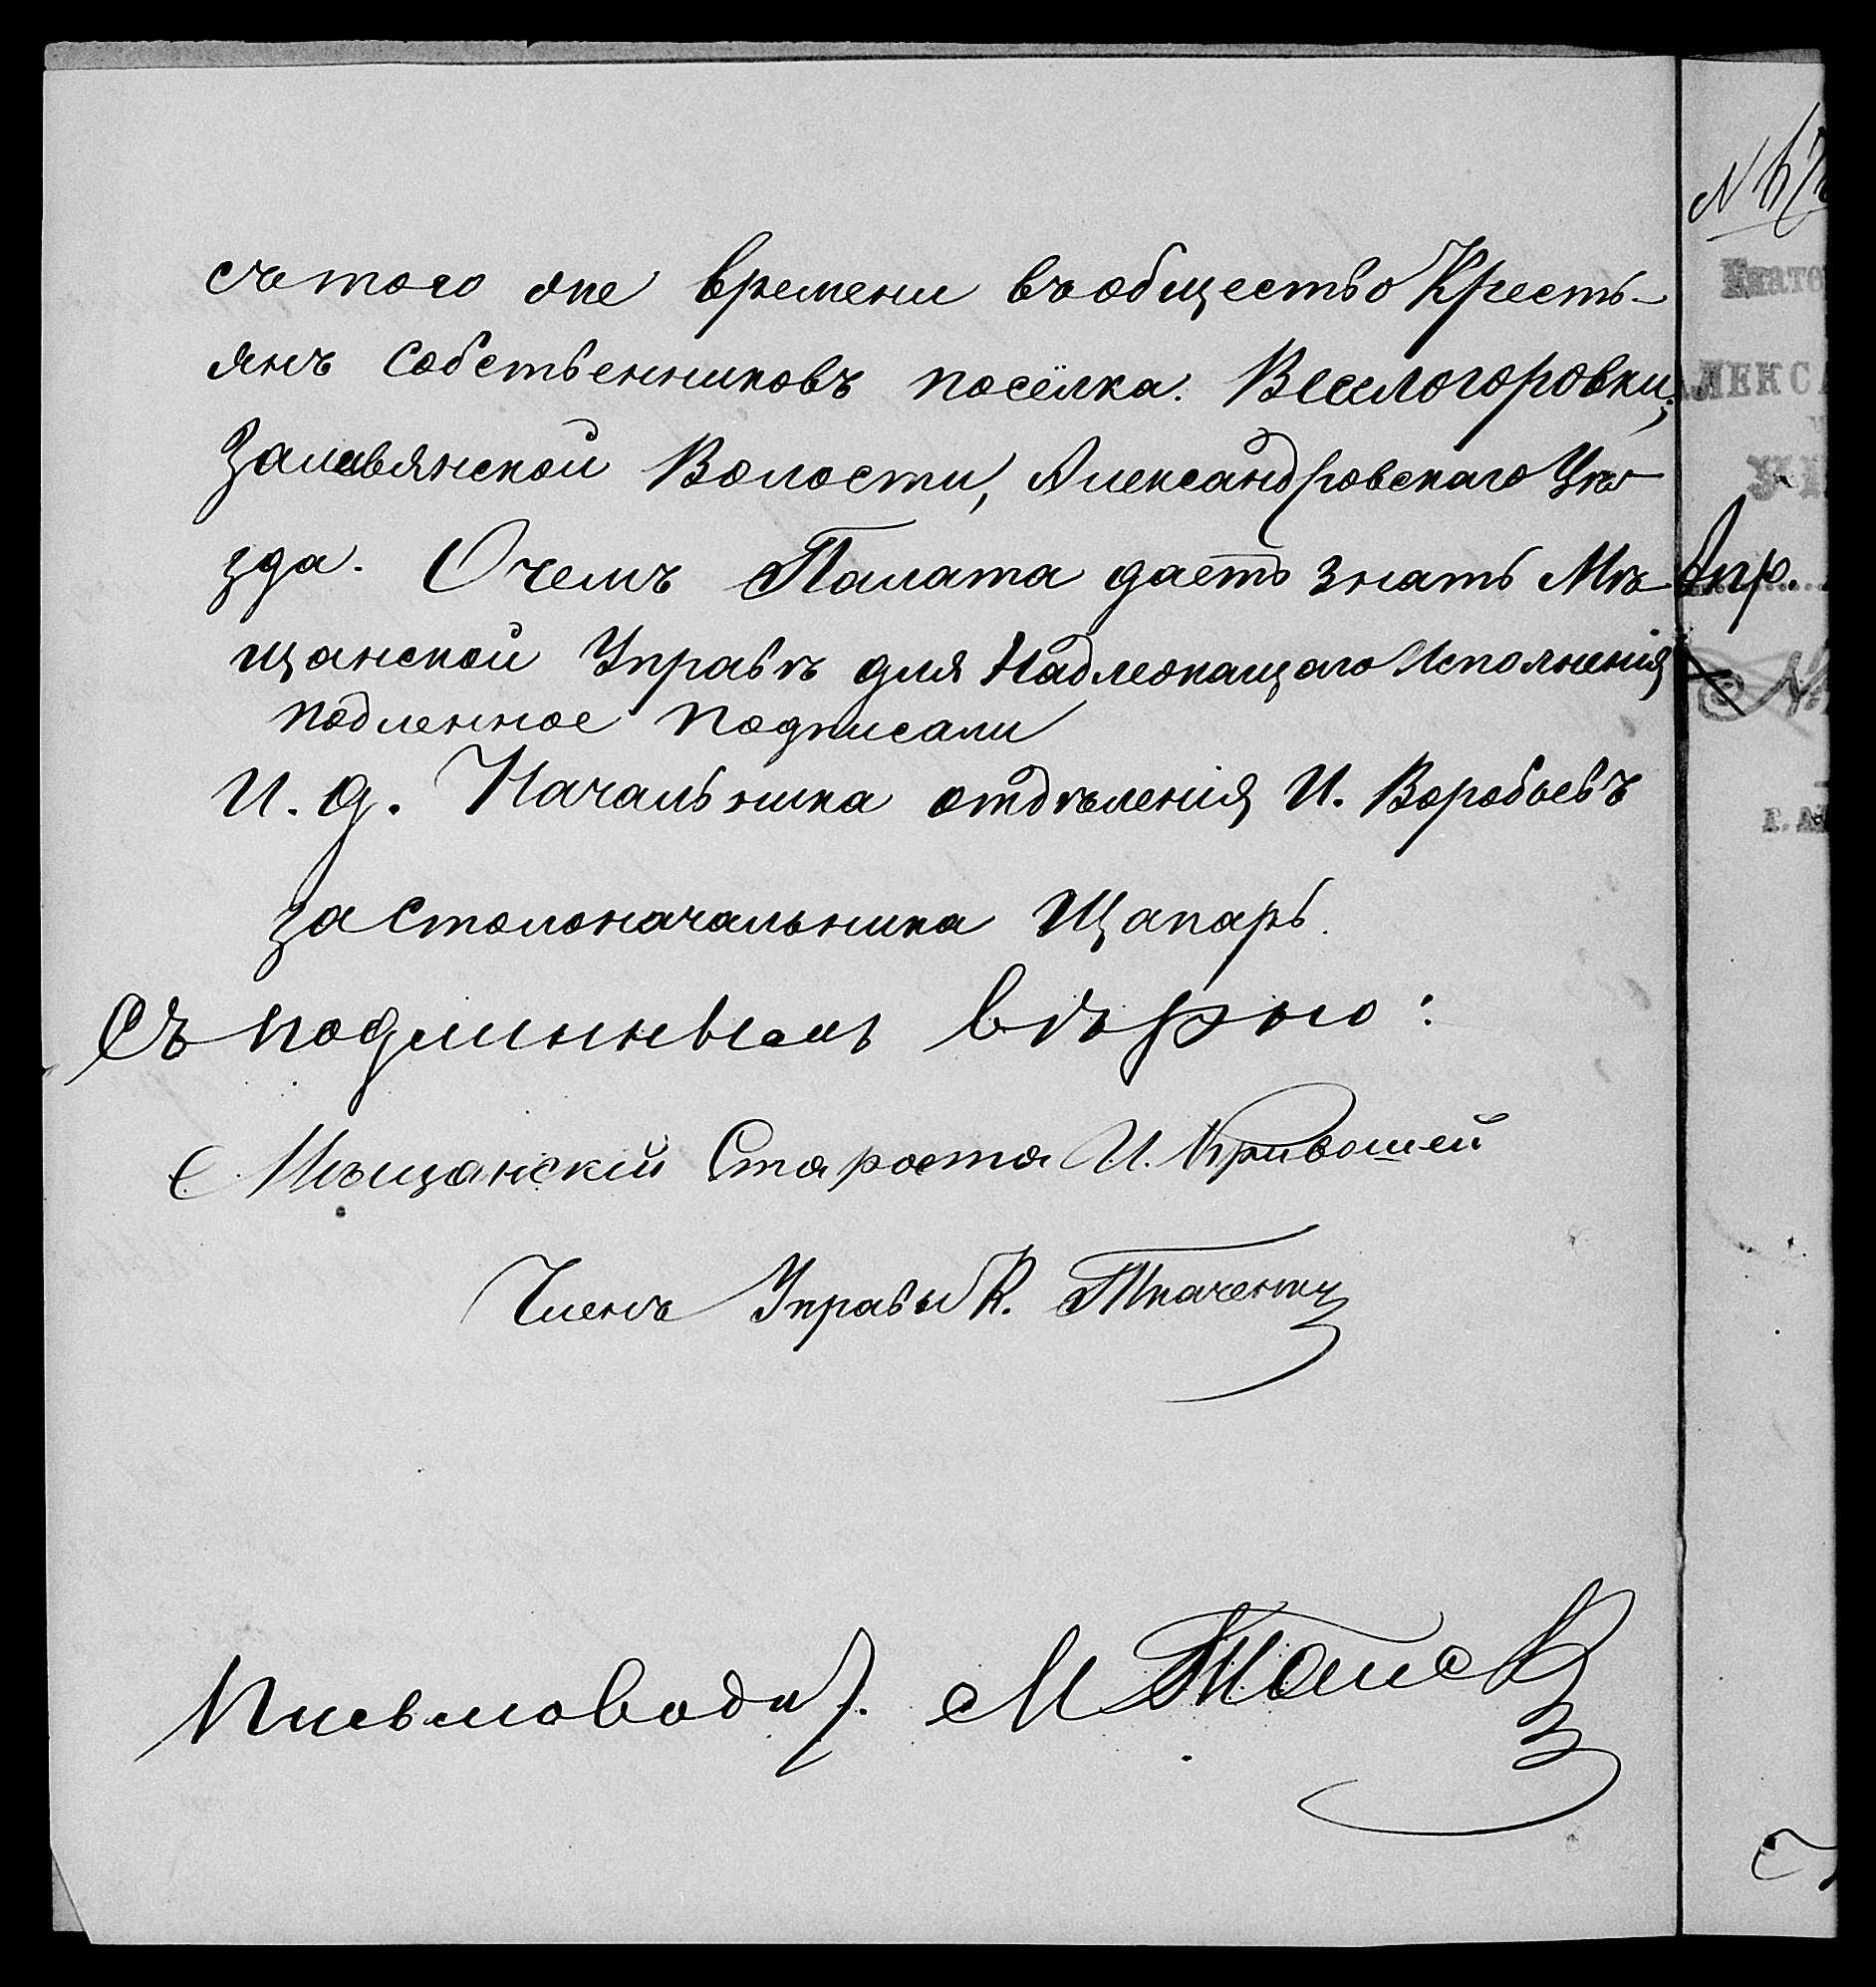 съ того же времени въ общество Кресть-
янъ собственниковъ посёлка. Веселогоровки,
Заливянской Волости, Александровскаго Уѣ-
зда. О чемъ Палата даетъ знать Мѣ-
щанской Управѣ для Надлежащаго Исполненія
подленное подписали
И. д. Начальника отдѣленія И. Воробьевъ
за Столоначальника Щапарь.
Съ подлиннымъ вѣрно:
Мѣщанскій Староста И. Кривошей
Членъ Управы К. Ткаченко
Письмоводит. М
№
Екате
АЛЕКС
Апр.
№
г. А